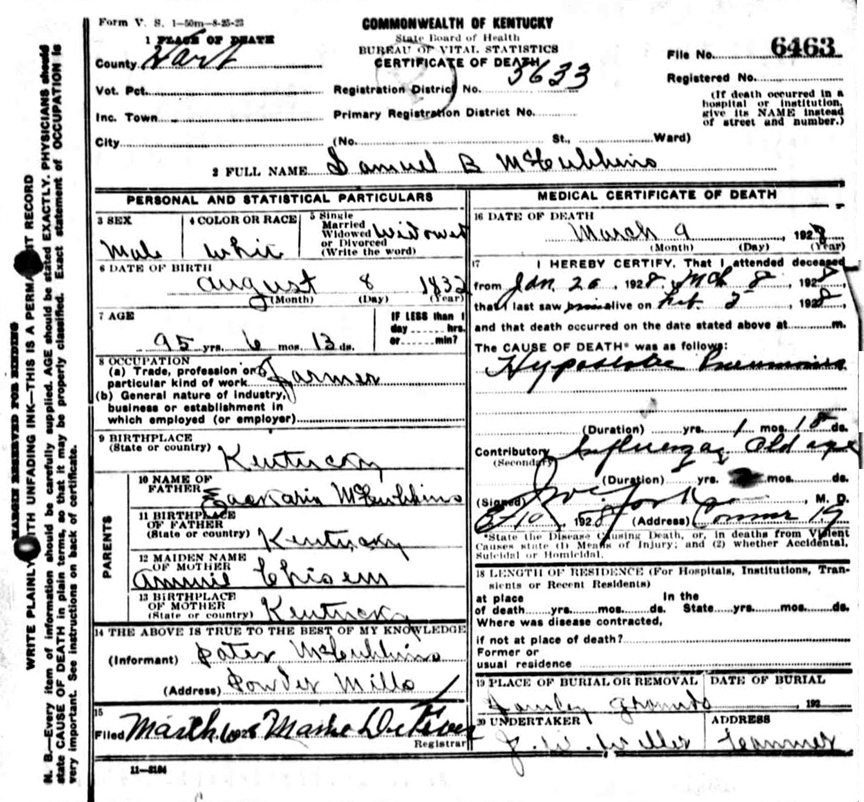 Form V. S. 1—50m—8-25-23
COMMONWEALTH OF KENTUCKY
State Board of Health
BUREAU OF VITAL STATISTICS
CERTIFICATE OF DEATH
File No. 6463
Registered No.
(If death occurred in a
hospital or institution,
give its NAME instead
of street and number.)
1 PLACE OF DEATH
County Hart
Vot. Pct.
Inc. Town
City
Registration District No. 5633
Primary Registration District No.
(No. St., Ward)
2 FULL NAME Samuel B McCubbins
PERSONAL AND STATISTICAL PARTICULARS
3 SEX
Male
4 COLOR OR RACE
5 Single
Married
Widowed
or Divorced
(Write the word)
6 DATE OF BIRTH
August 8 1832
(Month) (Day) (Year)
7 AGE
95 yrs. 6 mos. 13 ds.
IF LESS than 1
day hrs.
or min?
8 OCCUPATION
(a) Trade, profession or
particular kind of work Farmer
(b) General nature of industry,
business or establishment in
which employed (or employer)
9 BIRTHPLACE
(State or country)
Kentucky
PARENTS
10 NAME OF
FATHER
McCubbins
11 BIRTHPLACE
OF FATHER
(State or country) Kentucky
12 MAIDEN NAME
OF MOTHER
Annie Chisem
13 BIRTHPLACE
OF MOTHER
(State or country) Kentucky
14 THE ABOVE IS TRUE TO THE BEST OF MY KNOWLEDGE
(Informant) McCubbins
(Address) Powder Mills
15
Filed March
Registrar
11—3184
MEDICAL CERTIFICATE OF DEATH
16 DATE OF DEATH
March 9 1928
(Month) (Day) (Year)
17 I HEREBY CERTIFY, That I attended deceased
from Jan 20, 1928, Mch 8, 1928
that I last saw alive on Feb 5, 1928,
and that death occurred on the date stated above at m.
The CAUSE OF DEATH* was as follows:
Hypostatic Pneumonia
(Duration) yrs. 1 mos. 18 ds.
Contributory Influenza Old age
(Secondary)
(Duration) yrs. mos. ds.
(Signed) M. D.
1928 (Address)
*State the Disease Causing Death, or, in deaths from Violent
Causes state (1) Means of Injury; and (2) whether Accidental,
Suicidal or Homicidal.
18 LENGTH OF RESIDENCE (For Hospitals, Institutions, Transients or Recent Residents)
at place In the
of death yrs. mos. ds. State yrs. mos. ds.
Where was disease contracted,
if not at place of death?
Former or
usual residence
19 PLACE OF BURIAL OR REMOVAL
Family
DATE OF BURIAL
192
20 UNDERTAKER
J. W.
ADDRESS
MARGIN RESERVED FOR BINDING
WRITE PLAINLY WITH UNFADING INK—THIS IS A PERMANENT RECORD
N. B.—Every item of information should be carefully supplied. AGE should be stated EXACTLY. PHYSICIANS should
state CAUSE OF DEATH in plain terms, so that it may be properly classified. Exact statement of OCCUPATION is
very important. See instructions on back of certificate.